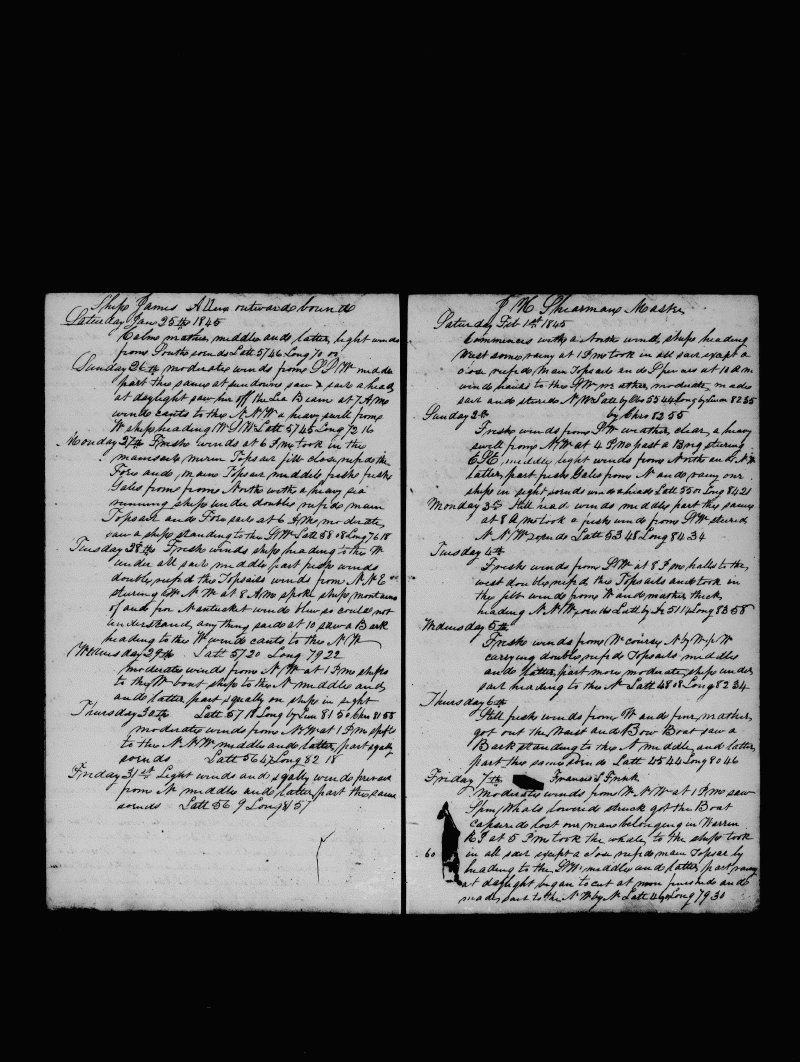 Ship James Allen outward bound
Saturday Jan 25th 1845
Calms mather middle and latter light winds
from South sounds Latt 5746 Long 70 00
Sunday 26th moderate winds from SSW middle
part the same at sundown saw a sail ahead
at daylight saw her off the Lee Beam at 7 AM
wind cants to the NNW a heavy swell from
W ship heading WSW Latt 5745 Long 72 16
Monday 27th Fresh winds at 6 PM took in the
mainsail mizen Topsail jib close refd the
Fore and main Topsail middle fresh fresh
Gales from from North with a heavy sea
running ship under double refd main
Topsail and Fore sail at 6 PM moderate
saw a ship standing to the SW Latt 5808 Long 7618
Tuesday 28th Fresh winds ship heading to the W
under all sail middle part fresh winds
double refd the Topsails winds from NNE
sturing W N W at 8 AM spoke ship montano
of and for Nantucket wind blew so could not
understand any thing said at 10 saw a Bark
heading to the W wind cants to the NW
Wednesday 29th Latt 5720 Long 7922
moderate winds from NW at 1 PM ship
to the W bout ship to the N middle and
and latter part squally on ship in sight
Thursday 30th Latt 57 18 Long by Lun 81 50 Chro 81 58
moderate winds from NW at 1 PM ship
to the NNW middle and latter part sqally
sounds Latt 5647 Long 82 18
Friday 31st Light winds and sqally wind prevail
from N middle and latter part the same
sounds Latt 56 9 Long 81 57
J M Shearman Master
Saturday Feb 1st 1845
Commences with a North wind ship heading
West some rainy at 1 PM took in all sail except a
close refd Main Topsail and Spencers at 10 AM
wind hauls to the SW mather moderate made
sail and stured NW Latt by Obs 5544 Long by Lunar 8235
by Chro 8255
Sunday 2d
Fresh winds from SW weather clear a heavy
swell from NW at 4 PM past a Brig sturing
ESE middle light winds from North and N
latter part fresh Gales from N and rainy one
ship in sight sounds wind ahead Latt 5500 Long 8421
Monday 3d Still head winds middle part the same
at 8 AM took a fresh wind from SW stured
NNW sounds Latt 5348 Long 8434
Tuesday 4th
Fresh winds from SW at 8 PM halls to the
west double refd the Topsails and took in
the jib winds from W and mather thick
heading NNW sounds Latt by Dr 5114 Long 8358
Wednesday 5th
Fresh winds from W course N by W 1/2 W
carrying double refd Topsails middle
and latter part more moderate ship under
sail heading to the N Latt 4808 Long 8234
Thursday 6th
Still fresh winds from W and fine mather
got out the Waist and Bow Boat saw a
Bark standing to the N middle and latter
part the same sounds Latt 4544 Long 8046
Friday 7th Francis S Frink
moderate winds from WNW at 1 PM saw
Sperm Whale lowered struck got the Boat
capsized lost one man belonging in Warren
RI at 5 PM took the whale to the ship took
60 in all sail except a close refd main Topsail by
heading to the SW middle and latter part rainy
at daylight began to cut at noon finished and
made sail to the NW by N Latt Long 7930